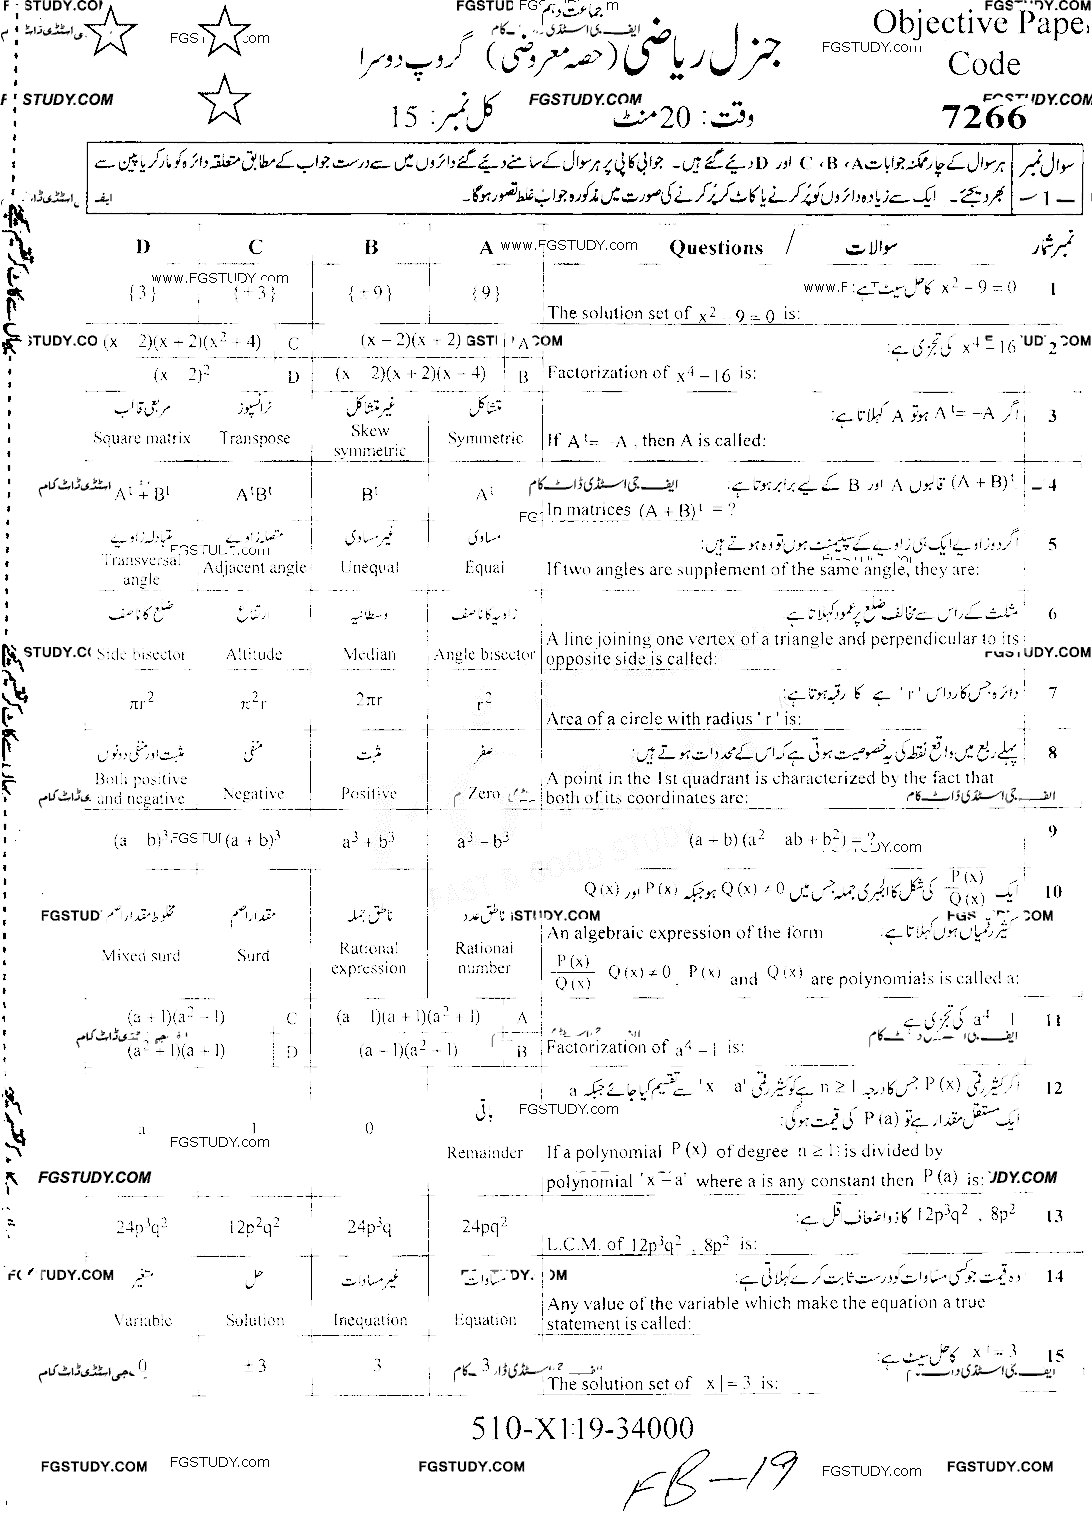 جماعت دہم
Objective Paper
جنرل ریاضی (حصہ معروضی) گروپ دوسرا
Code
وقت: 20 منٹ کل نمبر: 15
7266
سوال نمبر 1 ہر سوال کے چار ممکنہ جوابات A، B، C اور D دیئے گئے ہیں۔ جوابی کاپی پر ہر سوال کے سامنے دیئے گئے دائروں میں سے درست جواب کے مطابق متعلقہ دائرہ کو مارکر یا پین سے
بھر دیجئے۔ ایک سے زیادہ دائروں کو پُر کرنے یا کاٹ کر پُر کرنے کی صورت میں مذکورہ جواب غلط تصور ہوگا۔
D C B A www.FGSTUDY.com Questions / سوالات نمبر شمار
1 x² - 9 = 0 کا حل سیٹ ہے:
{3} {±3} {±9} {9}
The solution set of x² - 9 = 0 is:
2 x⁴ - 16 کی تجزی ہے:
(x - 2)(x + 2)(x² + 4) C (x - 2)(x + 2) A
(x - 2)² D (x - 2)(x + 2)(x - 4) B Factorization of x⁴ - 16 is:
3 اگر Aᵗ = -A ہو تو A کہلاتا ہے:
مربعی قالب ٹرانسپوز غیر متشاکل متشاکل
Square matrix Transpose Skew symmetric Symmetric If Aᵗ = -A, then A is called:
4 (A + B)ᵗ قالبوں A اور B کے لیے برابر ہوتا ہے:
Aᵗ + Bᵗ AᵗBᵗ Bᵗ Aᵗ
In matrices (A + B)ᵗ = ?
5 اگر دو زاویے ایک ہی زاویے کے سپلیمنٹ ہوں تو وہ ہوتے ہیں:
متبادلہ زاویے متصلہ زاویے غیر مساوی مساوی
Transversal angle Adjacent angle Unequal Equal If two angles are supplement of the same angle, they are:
6 مثلث کے راس سے مخالف ضلع پر عمود کہلاتا ہے
ضلع کا ناصف ارتفاع وسطانیہ زاویہ کا ناصف
A line joining one vertex of a triangle and perpendicular to its
Side bisector Altitude Median Angle bisector opposite side is called:
7 دائرہ جس کا رداس 'r' ہے کا رقبہ ہوتا ہے:
πr² π²r 2πr r²
Area of a circle with radius 'r' is:
8 پہلے ربع میں واقع نقطہ کی یہ خصوصیت ہوتی ہے کہ اس کے محددات ہوتے ہیں:
مثبت اور منفی دونوں منفی مثبت صفر
A point in the 1st quadrant is characterized by the fact that
Both positive and negative Negative Positive Zero both of its coordinates are:
9 (a + b)(a² - ab + b²) = ?
(a - b)³ (a + b)³ a³ + b³ a³ - b³
10 ایک P(x)/Q(x) کی شکل کا الجبری جملہ جس میں Q(x) ≠ 0 ہو جبکہ P(x) اور Q(x)
کثیر رقمیاں ہوں کہلاتا ہے:
مخلوط مقدار اصم مقدار اصم ناطق جملہ ناطق عدد
An algebraic expression of the form
Mixed surd Surd Rational expression Rational number
P(x)/Q(x) Q(x) ≠ 0, P(x) and Q(x) are polynomials is called a:
11 a⁴ - 1 کی تجزی ہے
(a + 1)(a² - 1) C (a - 1)(a + 1)(a² + 1) A
D B Factorization of a⁴ - 1 is:
12 اگر کثیر رقمی P(x) جس کا درجہ n ≥ 1 ہے کو کثیر رقمی 'x - a' سے تقسیم کیا جائے جبکہ a
ایک مستقل مقدار ہے تو P(a) کی قیمت ہوگی:
باقی
a 1 0 Remainder
If a polynomial P(x) of degree n ≥ 1 is divided by
polynomial 'x - a' where a is any constant then P(a) is:
13 12p³q², 8p² کا ذو اضعاف اقل ہے:
24p³q² 12p²q² 24p³q 24pq²
L.C.M. of 12p³q², 8p² is:
14 وہ قیمت جو کسی مساوات کو درست ثابت کرے کہلاتی ہے:
متغیر حل غیر مساوات مساوات
Any value of the variable which make the equation a true
Variable Solution Inequation Equation statement is called:
15 |x| = 3 کا حل سیٹ ہے:
0 ±3 3
The solution set of |x| = 3 is:
510-X119-34000
FGSTUDY.COM FGSTUDY.com FGSTUDY.COM FGSTUDY.com FGSTUDY.COM
FB-19